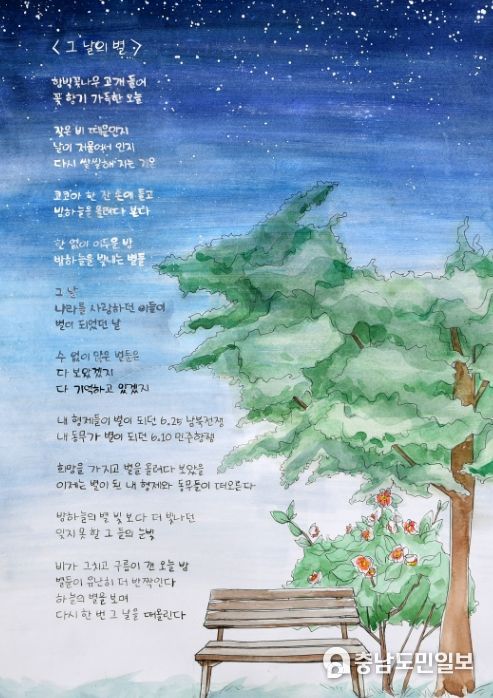 < 그 날의 별 >
함박꽃나무 고개 들어
꽃 향기 가득한 오늘
잦은 비 때문인지
날이 저물어서 인지
다시 쌀쌀해 지는 기온
코코아 한 잔 손에 들고
밤하늘을 올려다 본다
한 없이 어두운 밤
밤하늘을 빛내는 별들
그 날
나라를 사랑하던 이들이
별이 되었던 날
수 없이 많은 별들은
다 보았겠지
다 기억하고 있겠지
내 형제들이 별이 되던 6.25 남북전쟁
내 동무가 별이 되던 6.10 민주항쟁
희망을 가지고 별을 올려다 보았을
이제는 별이 된 내 형제와 동무들이 떠오른다
밤하늘의 별 빛 보다 더 빛나던
잊지 못 할 그 들의 눈빛
비가 그치고 구름이 갠 오늘 밤
별들이 유난히 더 반짝인다
하늘의 별을 보며
다시 한 번 그 날을 떠올린다
충남도민일보